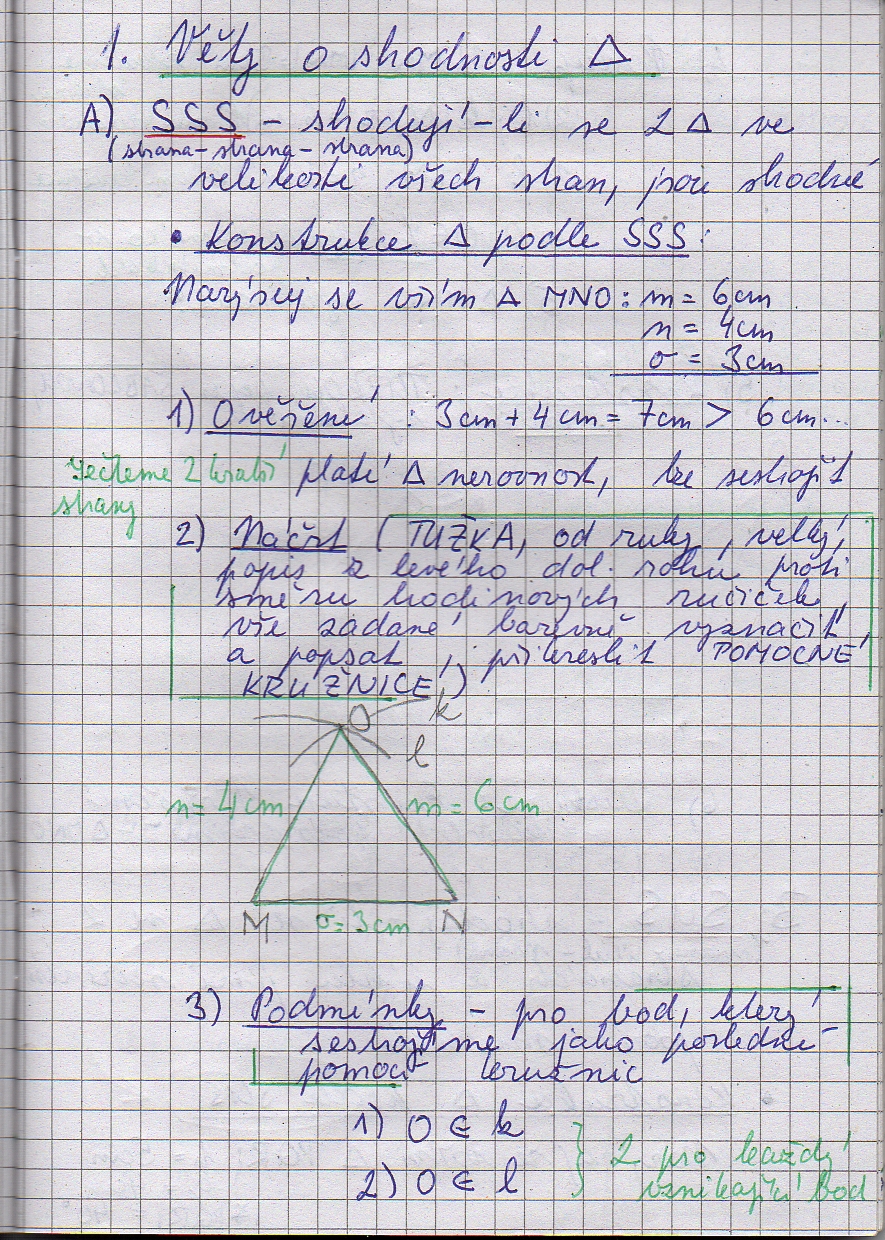 1. Věty o shodnosti △
A) SSS - shodují-li se 2 △ ve
(strana-strana-strana)
velikosti všech stran, jsou shodné
• Konstrukce △ podle SSS:
Narýsuj se vším △ MNO: m = 6cm
n = 4cm
o = 3cm
1) Ověření : 3cm + 4cm = 7cm > 6cm...
sečteme 2 kratší
platí △ nerovnost, lze sestrojit
strany
2) Náčrt (TUŽKA, od ruky, velký,
popis z levého dol. rohu proti
směru hodinových ručiček,
vše zadané barevně vyznačit,
a popsat, přikreslit POMOCNÉ
KRUŽNICE)
O k
l
n = 4cm m = 6cm
M o = 3cm N
3) Podmínky - pro bod, který
sestrojíme jako poslední
pomocí kružnic
1) O ∈ k
2 pro každý
2) O ∈ l
vznikající bod